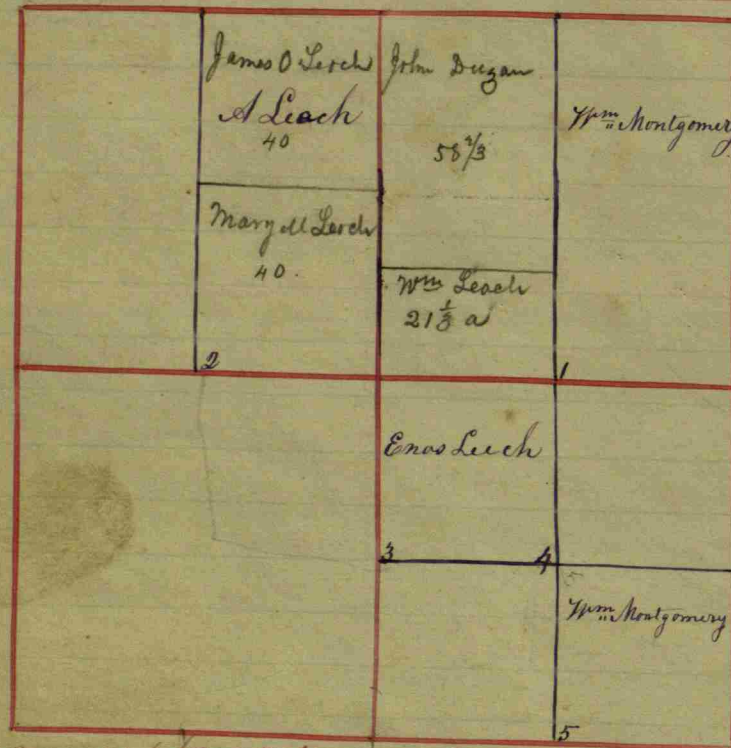 James O Leech
A Leach
40
John Dugan
58 2/3
Wm Montgomery
Mary M Leech
40.
Wm Leach
21 1/3 a
2
1
Enos Leech
3
4
Wm Montgomery
5